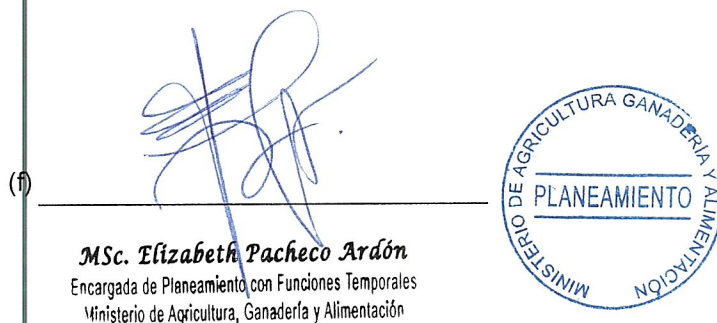 (f)
MSc. Elizabeth Pacheco Ardón
Encargada de Planeamiento con Funciones Temporales
Ministerio de Agricultura, Ganadería y Alimentación
MINISTERIO DE AGRICULTURA GANADERÍA Y ALIMENTACIÓN
PLANEAMIENTO